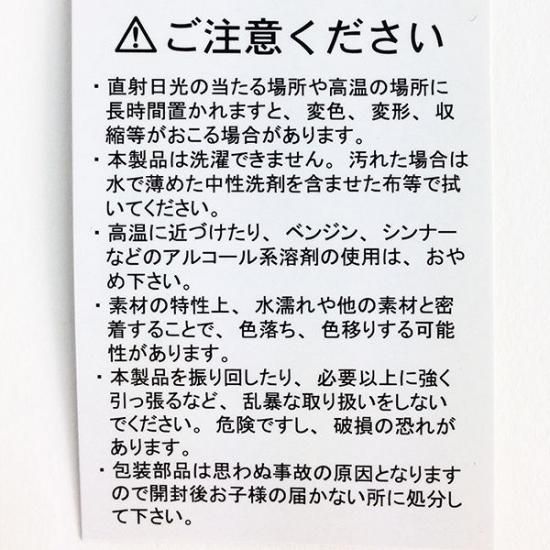 ⚠ご注意ください
・直射日光の当たる場所や高温の場所に
長時間置かれますと、変色、変形、収
縮等がおこる場合があります。
・本製品は洗濯できません。汚れた場合は
水で薄めた中性洗剤を含ませた布等で拭
いてください。
・高温に近づけたり、ベンジン、シンナー
などのアルコール系溶剤の使用は、おや
め下さい。
・素材の特性上、水濡れや他の素材と密
着することで、色落ち、色移りする可能
性があります。
・本製品を振り回したり、必要以上に強く
引っ張るなど、乱暴な取り扱いをしない
でください。危険ですし、破損の恐れが
あります。
・包装部品は思わぬ事故の原因となります
ので開封後お子様の届かない所に処分し
て下さい。